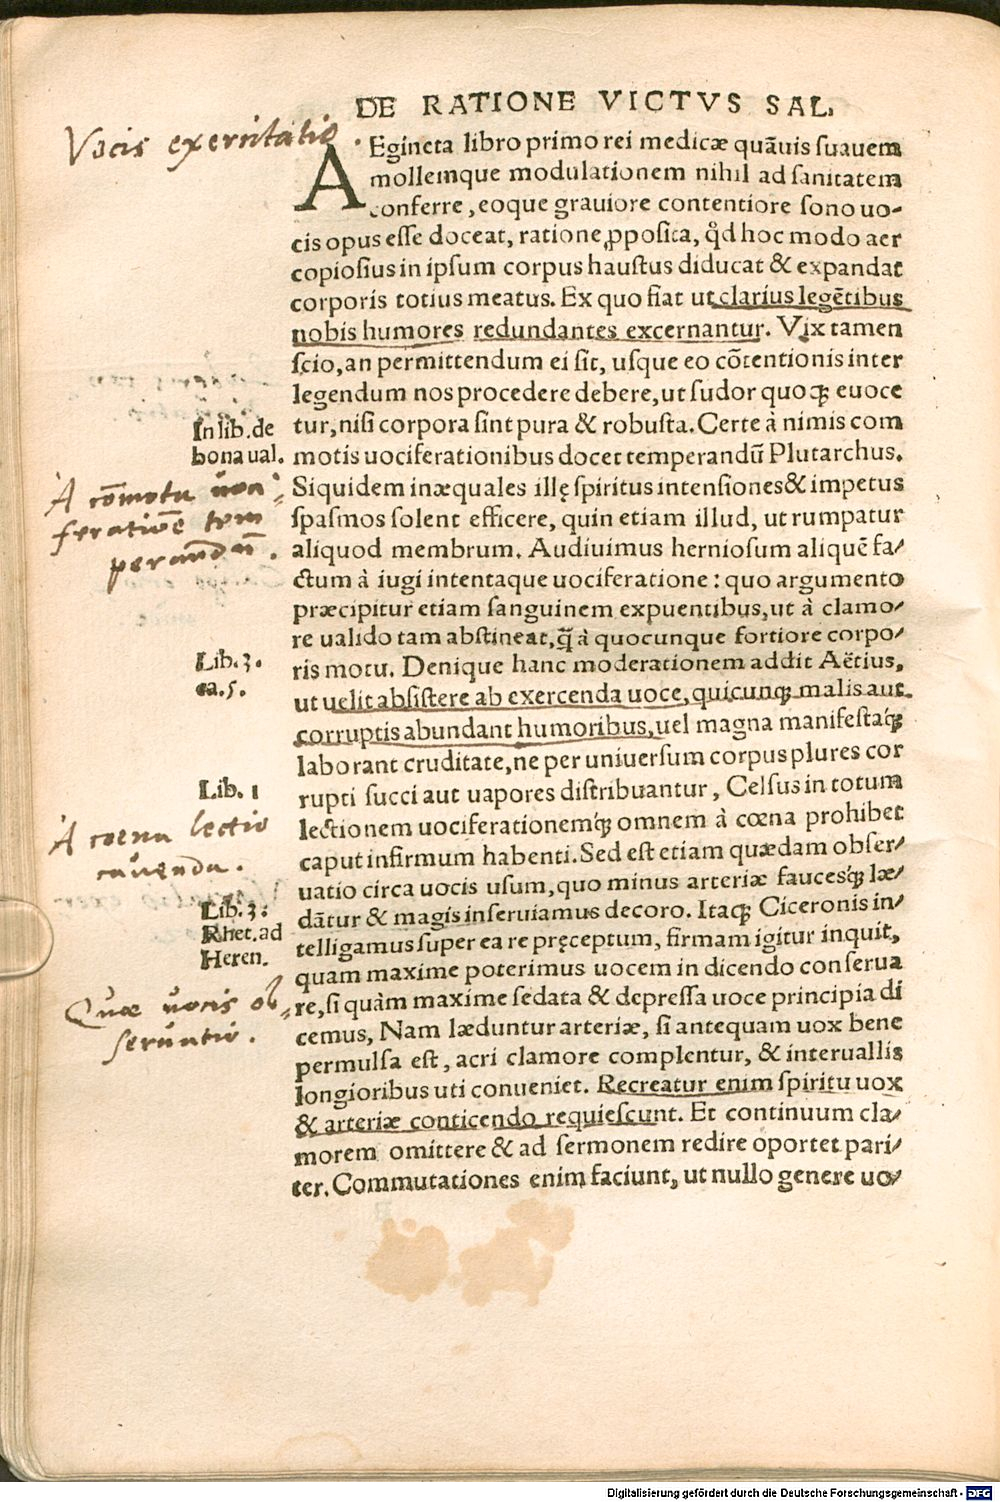 DE RATIONE VICTVS SAL.
Vocis exercitatio.
AEgineta libro primo rei medicæ quãuis suauem
mollemque modulationem nihil ad sanitatem
conferre, eoque grauiore contentiore sono uo-
cis opus esse doceat, ratione ꝓposita, qd̛ hoc modo aer
copiosius in ipsum corpus haustus diducat & expandat
corporis totius meatus. Ex quo fiat ut clarius legẽtibus
nobis humores redundantes excernantur. Vix tamen
scio, an permittendum ei sit, usque eo cõtentionis inter
legendum nos procedere debere, ut sudor quoqꝫ euoce
tur, nisi corpora sint pura & robusta. Certe à nimis com
In lib. de
bona ual.
motis uociferationibus docet temperandũ Plutarchus.
À cõmota uoci-
feratiõe tem
perandũ.
Siquidem inæquales illę spiritus intensiones & impetus
spasmos solent efficere, quin etiam illud, ut rumpatur
aliquod membrum. Audiuimus herniosum aliquẽ fa-
ctum à iugi intentaque uociferatione: quo argumento
præcipitur etiam sanguinem expuentibus, ut à clamo-
re ualido tam abstineat, q̃̃ à quocunque fortiore corpo-
Lib. 3.
ca. 5.
ris motu. Denique hanc moderationem addit Aëtius,
ut uelit absistere ab exercenda uoce, quicunqꝫ malis aut
corruptis abundant humoribus, uel magna manifestaqꝫ́
laborant cruditate, ne per uniuersum corpus plures cor
Lib. 1
rupti succi aut uapores distribuantur, Celsus in totum
À coena lectio
cauenda.
lectionem uociferationemqꝫ́ omnem à cœna prohibet
caput infirmum habenti. Sed est etiam quædam obser-
uatio circa uocis usum, quo minus arteriæ faucesqꝫ́ læ-
Lib. 3.
Rhet. ad
Heren.
dãtur & magis inseruiamus decoro. Itaqꝫ Ciceronis in-
telligamus super ea re pręceptum, firmam igitur inquit,
quam maxime poterimus uocem in dicendo conserua
Quæ uocis ob-
seruatio.
re, si quàm maxime sedata & depressa uoce principia di
cemus, Nam læduntur arteriæ, si antequam uox bene
permulsa est, acri clamore complentur, & interuallis
longioribus uti conueniet. Recreatur enim spiritu uox
& arteriæ conticendo requiescunt. Et continuum cla-
morem omittere & ad sermonem redire oportet pari-
ter. Commutationes enim faciunt, ut nullo genere uo-
Digitalisierung gefördert durch die Deutsche Forschungsgemeinschaft - DFG